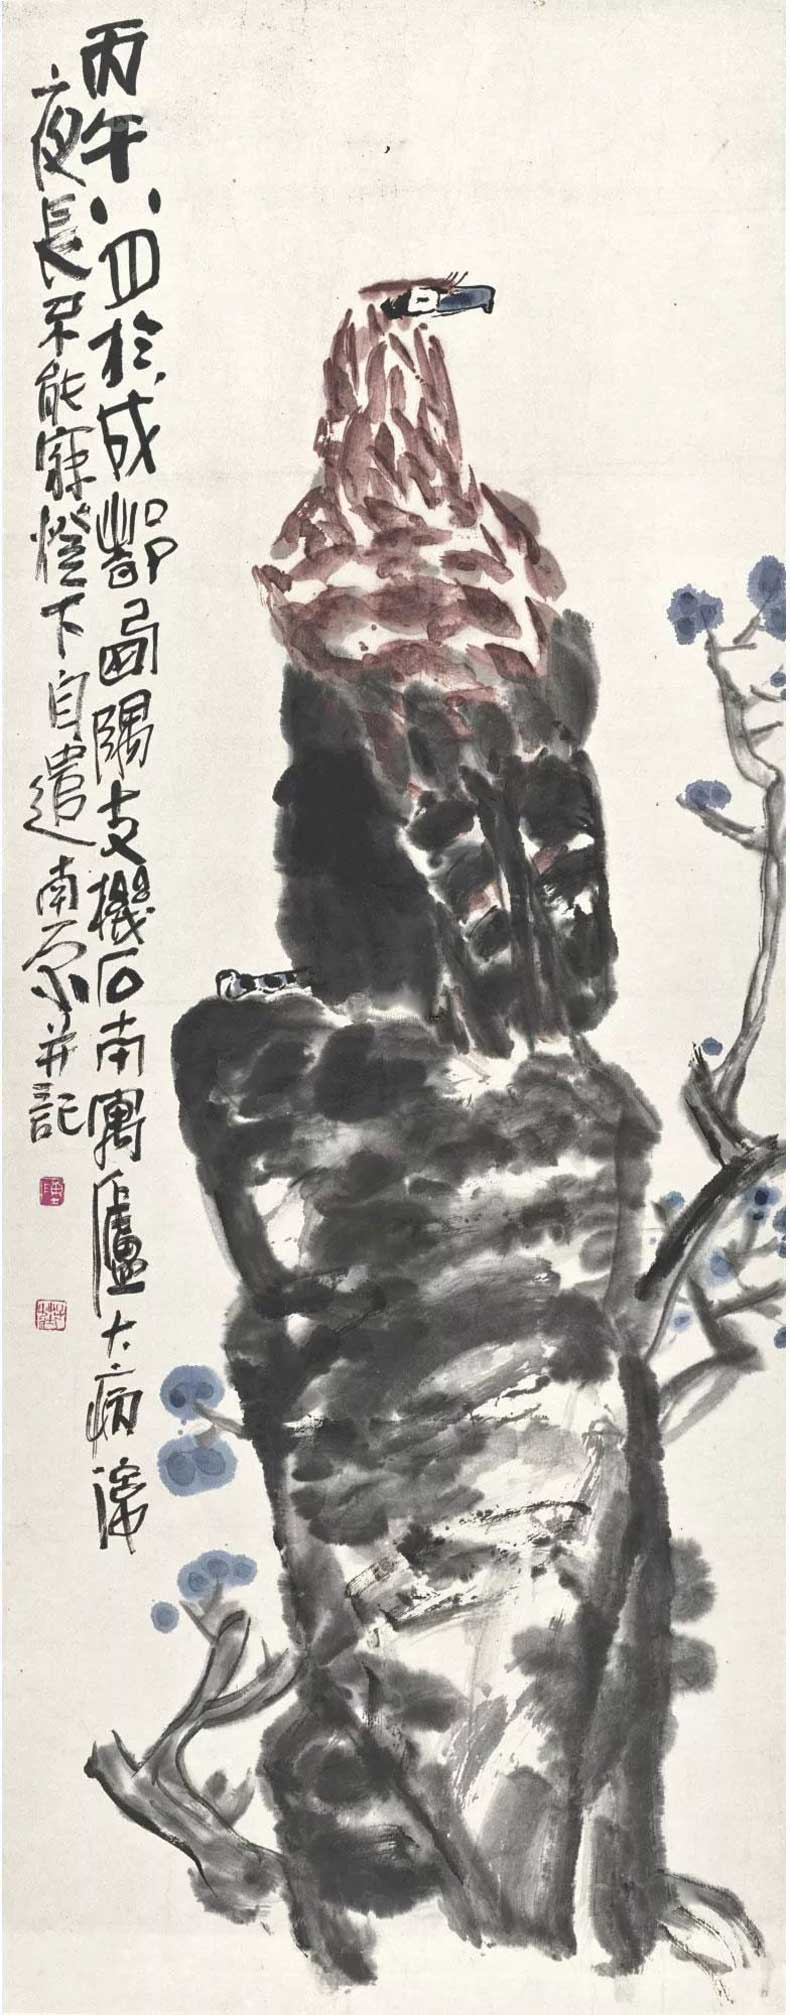 丙午八月於成都西隅支機石南寓廬大病深
夜長不能寐燈下自遣南原并記